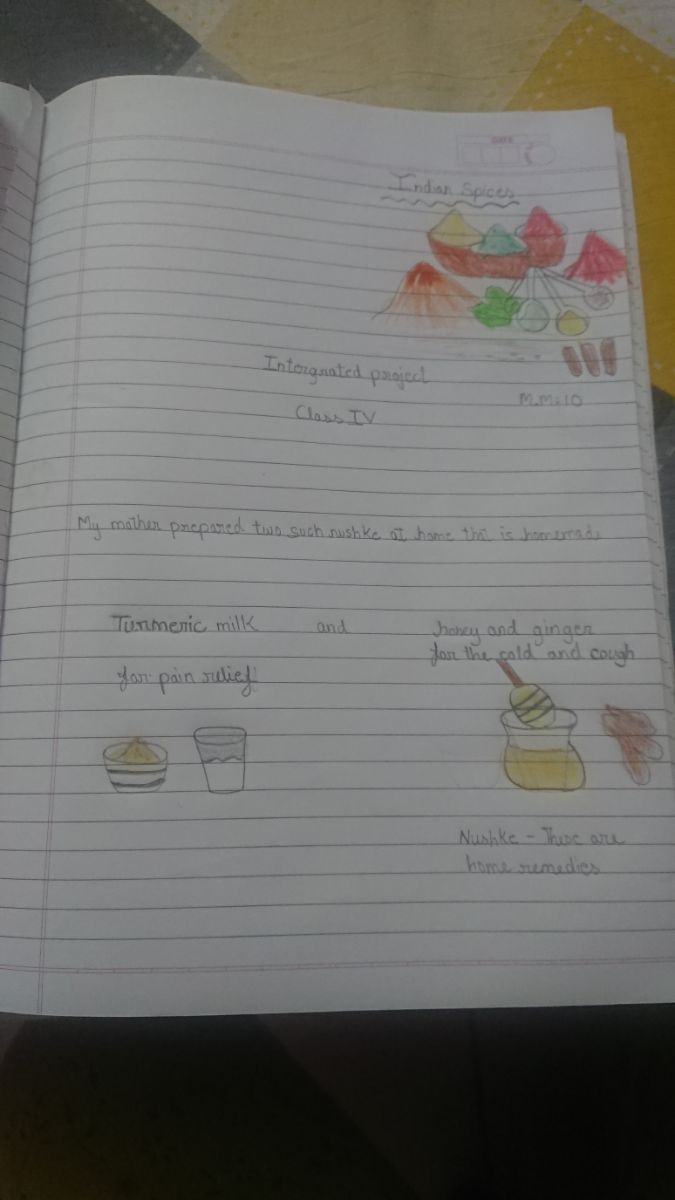 DATE
Indian Spices
Intergrated project
M.M:10
Class IV
My mother prepared two such nushke at home that is homemade
Turmeric milk and honey and ginger
for the cold and cough
for pain relief
Nushke - These are
home remedies